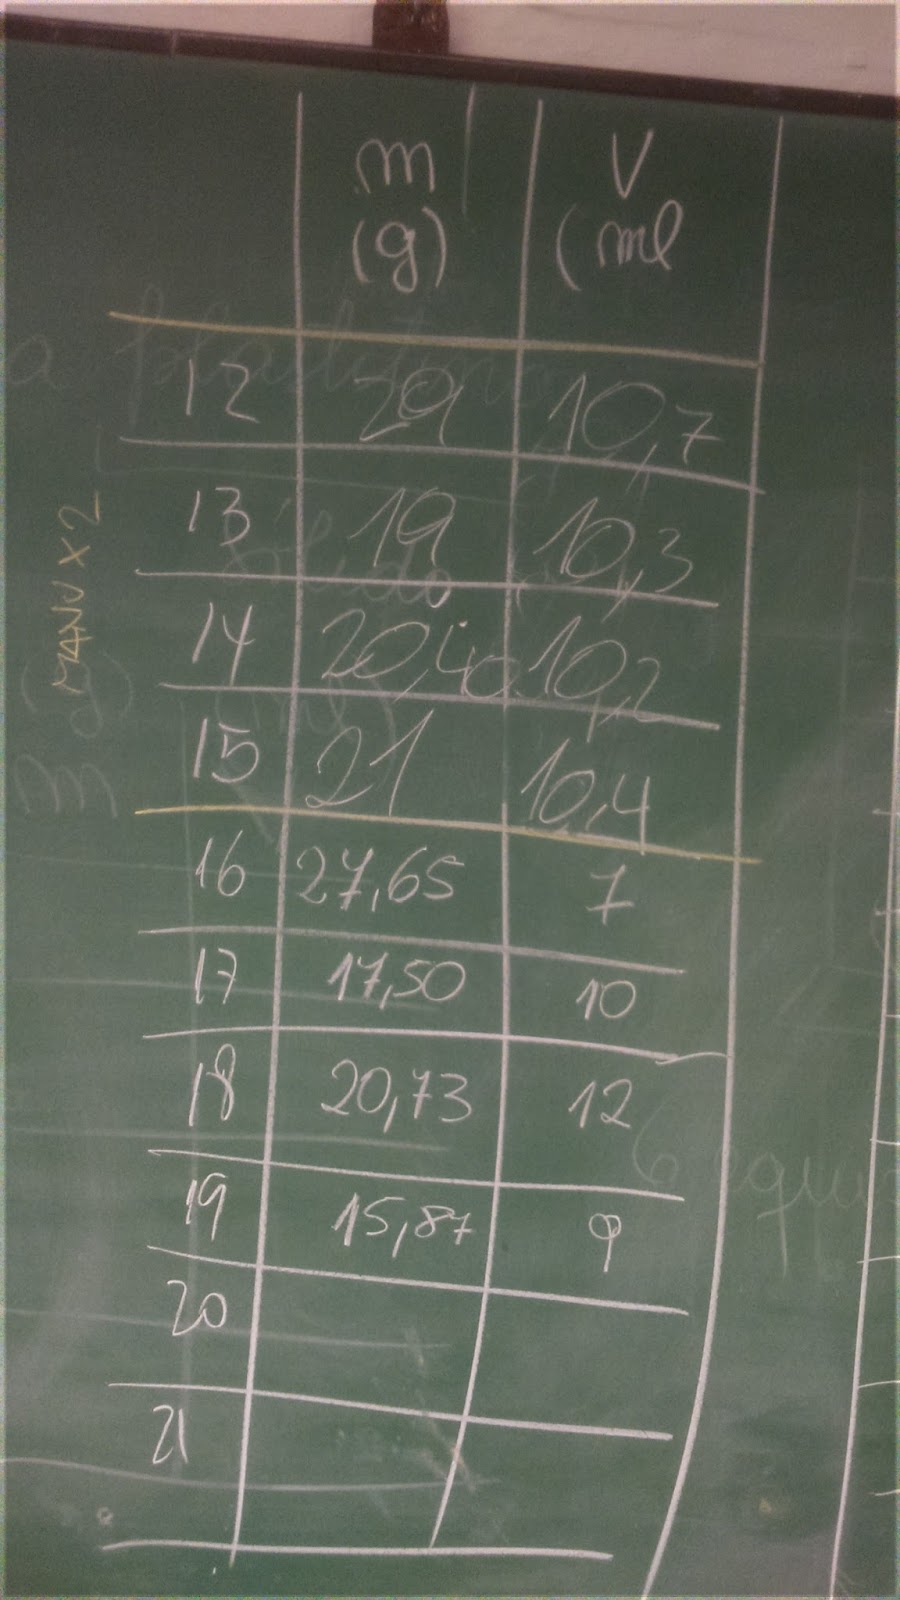 m V
(g) (ml
12 29 10,7
13 19 10,3
14 20,40 10,2
15 21 10,4
16 27,65 7
17 17,50 10
18 20,73 12
19 15,87 9
20
21
MANU X 2